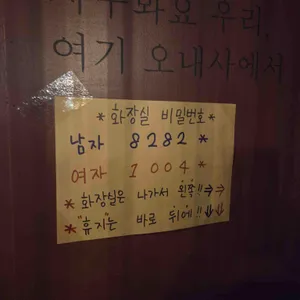 자주봐요 우리,
여기 오내사에서
* 화장실 비밀번호 *
남자 8282 *
여자 1004 *
* 화장실은 나가서 왼쪽!! ⇒⇒
* "휴지"는 바로 뒤에!! ⇓⇓